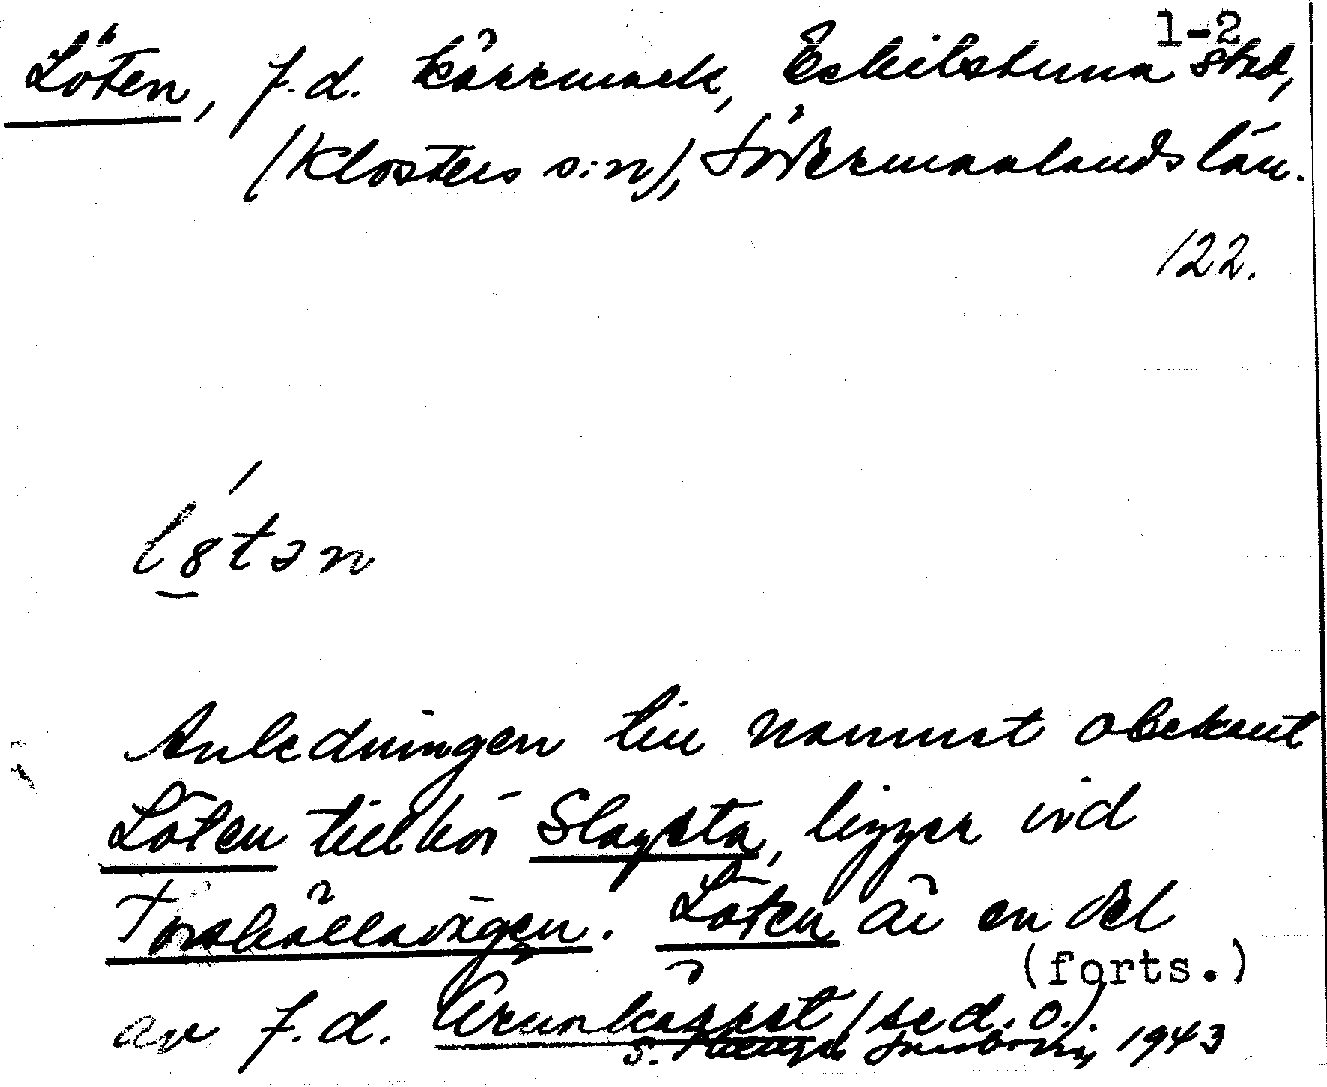 1-2
Löten, f.d. kärrmark, Eskilstuna stad,
(Klosters s:n), Södermanlands län.
122.
l8tən
Anledningen till namnet obekant
Löten tillhör Slagsta, ligger vid
Torshällavägen. Löten är en del
(forts.)
av f.d. Årumkärret (se d.o.)
S. 1943